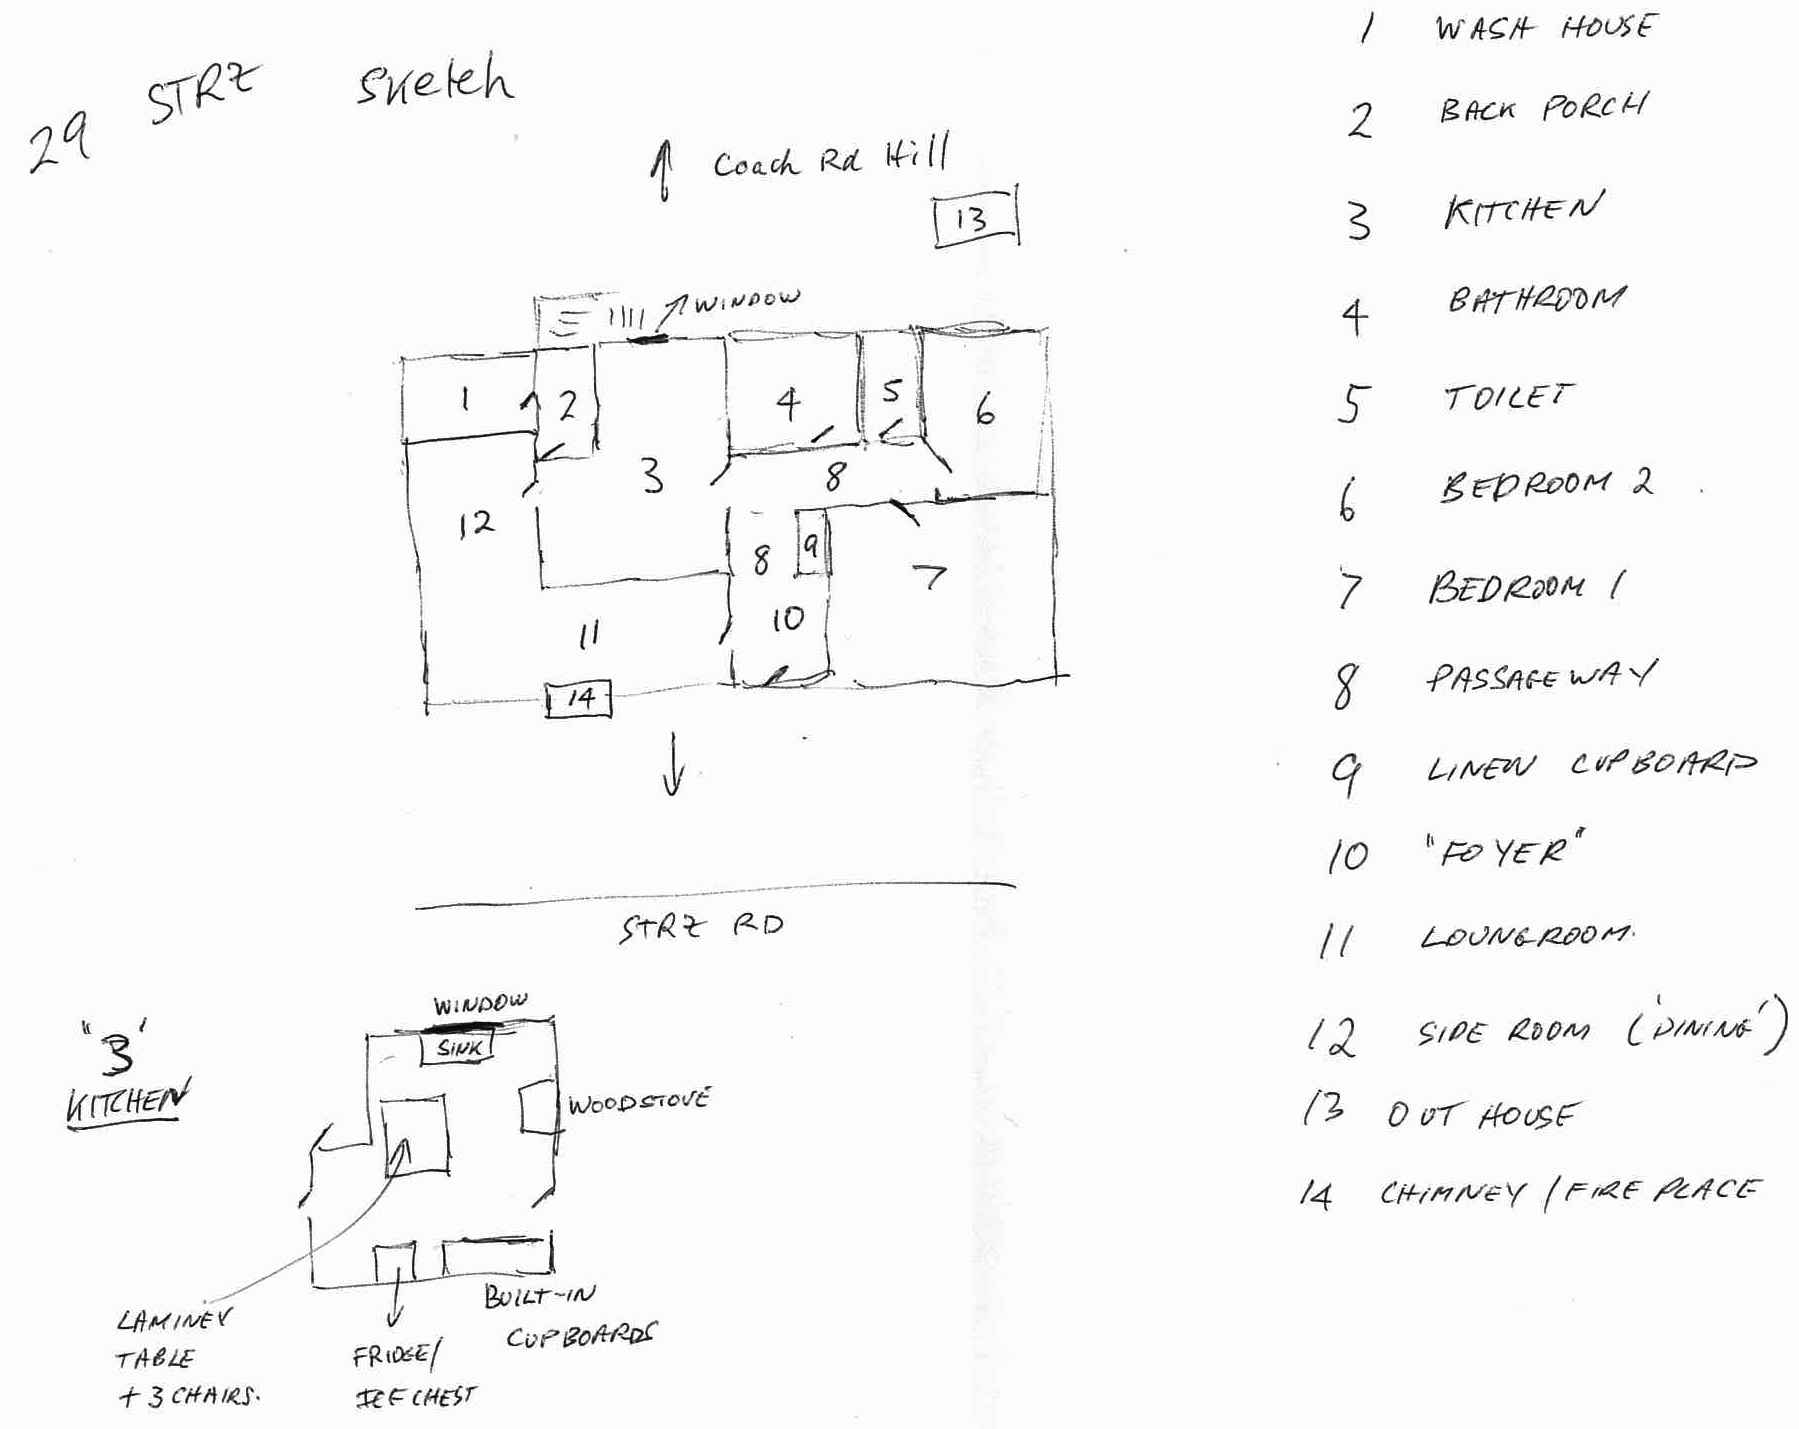 29 STRZ Sketch
Coach Rd Hill
13
WINDOW
1
2
3
4
5
6
8
12
8
9
7
10
11
14
STRZ RD
"3'
KITCHEN
WINDOW
SINK
WOODSTOVE
LAMINEX
TABLE
+ 3 CHAIRS.
FRIDGE/
ICE CHEST
BUILT-IN
CUPBOARDS
1 WASH HOUSE
2 BACK PORCH
3 KITCHEN
4 BATHROOM
5 TOILET
6 BEDROOM 2
7 BEDROOM 1
8 PASSAGEWAY
9 LINEN CUPBOARD
10 "FOYER"
11 LOUNGROOM.
12 SIDE ROOM ('DINING')
13 OUT HOUSE
14 CHIMNEY / FIRE PLACE